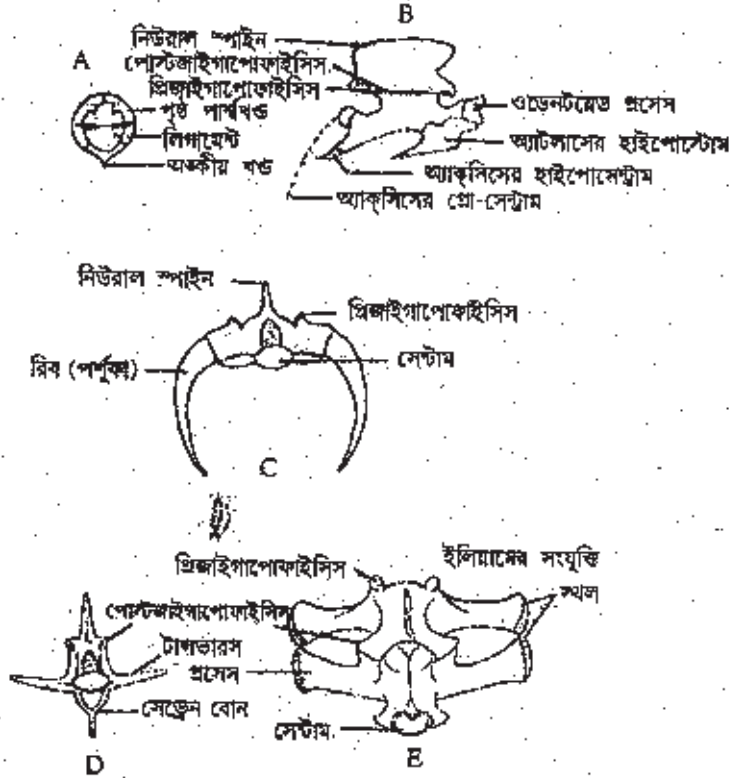 B
নিউরাল স্পাইন
A
পোস্টজাইগাপোফাইসিস
প্রিজাইগাপোফাইসিস
পৃষ্ঠ পার্শ্বখন্ড
লিগামেন্ট
অঙ্কীয় খন্ড
ওডেনটয়েড প্রসেস
অ্যাটলাসের হাইপোস্টোম
অ্যাক্সিসের হাইপোসেন্ট্রাম
অ্যাক্সিসের প্লো-সেন্ট্রাম
নিউরাল স্পাইন
প্রিজাইগাপোফাইসিস
রিব (পর্শুকা)
সেন্টাম
C
প্রিজাইগাপোফাইসিস
ইলিয়ামের সংযুক্তি
স্থল
পোস্টজাইগাপোফাইসিস
টান্সভারস
প্রসেস
সেভ্রেন বোন
সেন্টাম
D
E